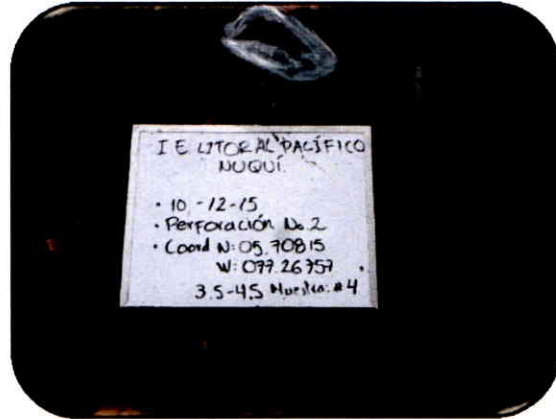 I E LITORAL PACÍFICO
NUQUÍ.
• 10 -12-15
• Perforación No. 2
• Coord N: 05.70815
W: 077.26757
3.5-4.5 Muestra: #4